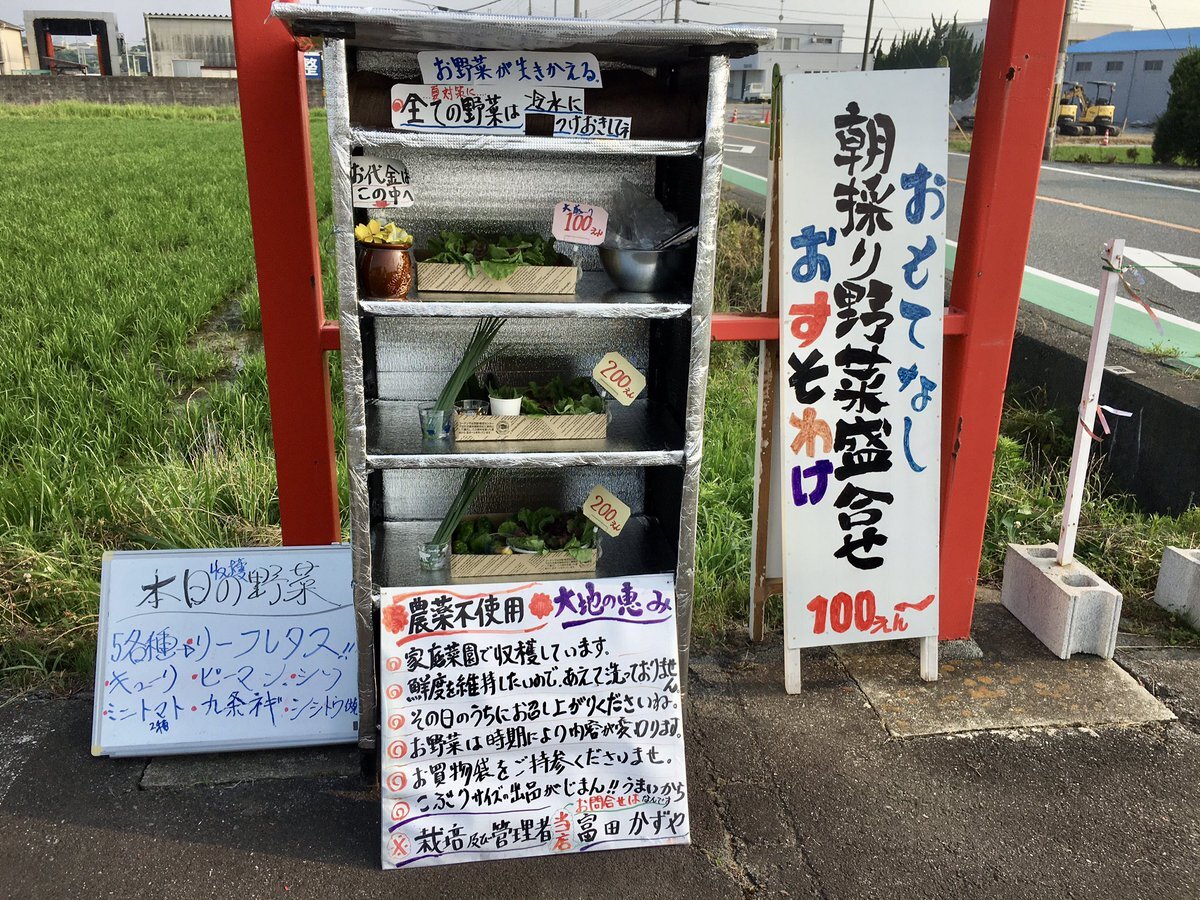 お野菜が生きかえる。
夏対策に…
全ての野菜は
冷水に
つけおきして
お代金は
この中へ
100えん
200えん
200えん
おもてなし
朝採り野菜盛合せ
おすそわけ
100えん
整
本日の野菜
収穫
5各種→リーフレタス!!
・キューリ・ピーマン・シソ
・ミニトマト・九条ネギ・シシトウ
2箱
農薬不使用 大地の恵み
家庭菜園で収穫しています。
鮮度を維持したいので、あえて洗っておりません
その日のうちにお召し上がりくださいね。
お野菜は時期により内容が変わります。
お買物袋をご持参くださいませ。
こぶりサイズの出品がじまん!!うまいから
なんです
お問合せは
栽培及び管理者 当店 富田かずや